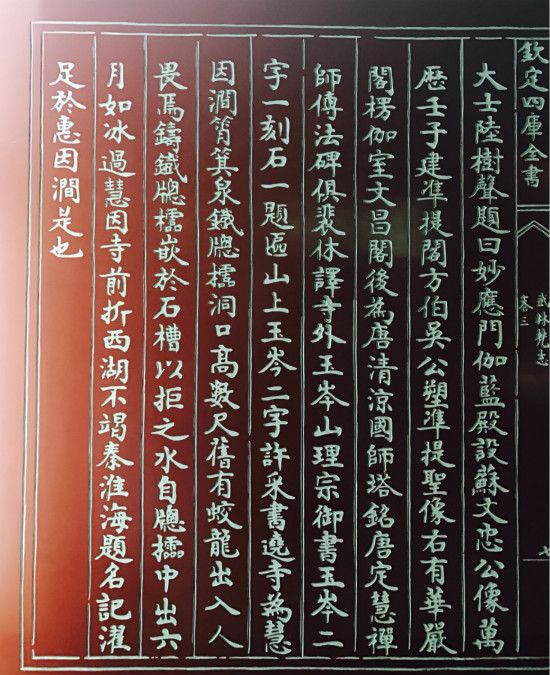 欽定四庫全書
武林梵志
卷三
七
大士陸樹聲題曰妙應門伽藍殿設蘇文忠公像萬
歷壬子建準提閣方伯吳公塑準提聖像右有華嚴
閣楞伽室文昌閣後為唐清涼國師塔銘唐定慧禪
師傳法碑俱裴休譯寺外玉岑山理宗御書玉岑二
字一刻石一題匾山上玉岑二字許采書遶寺為慧
因澗筲箕泉鐵牕櫺洞口高數尺舊有蛟龍出入人
畏焉鑄鐵牕櫺嵌於石槽以拒之水自牕櫺中出六
月如冰過慧因寺前折西湖不竭秦淮海題名記濯
足於惠因澗是也